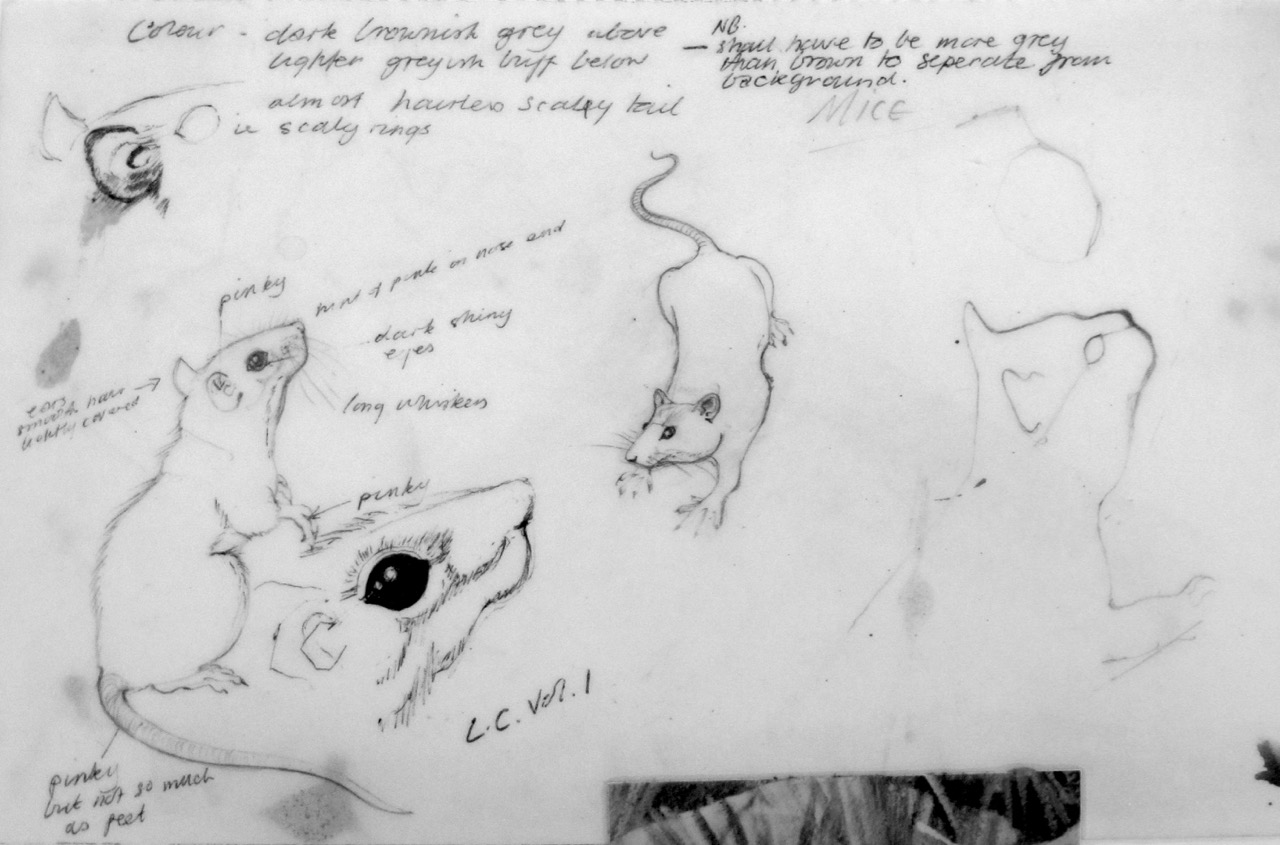 Colour - dark brownish grey above
lighter greyish buff below
almost hairless scaley tail
ie scaly rings
NB.
- shall have to be more grey
than brown to seperate from
background.
MICE
pinky
hint of pink on nose end
dark shiny
eyes
ears
smooth hair
lightly covered
long whiskers
pinky
L.C. Vol. 1
pinky
but not so much
as feet